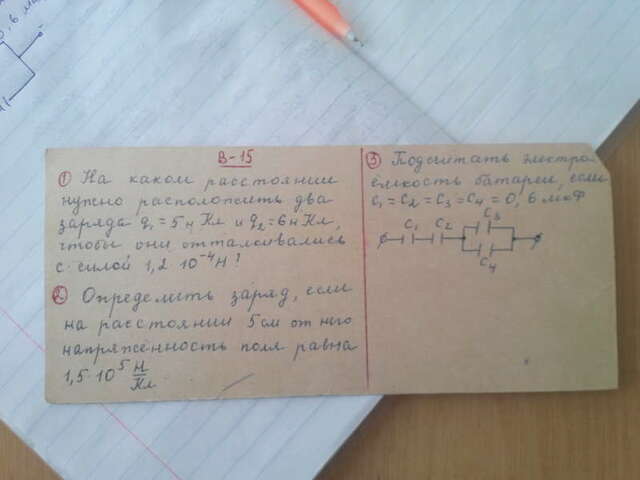 В-15
① На каком расстоянии
нужно расположить два
заряда q₁ = 5нКл и q₂ = 6нКл,
чтобы они отталкивались
с силой 1,2·10⁻⁴н?
② Определить заряд, если
на расстоянии 5см от него
напряжённость поля равна
1,5·10⁵ Н/Кл
③ Подсчитать электро-
ёмкость батареи, если
C₁ = C₂ = C₃ = C₄ = 0,6 мкФ
C₁ C₂ C₃
C₄